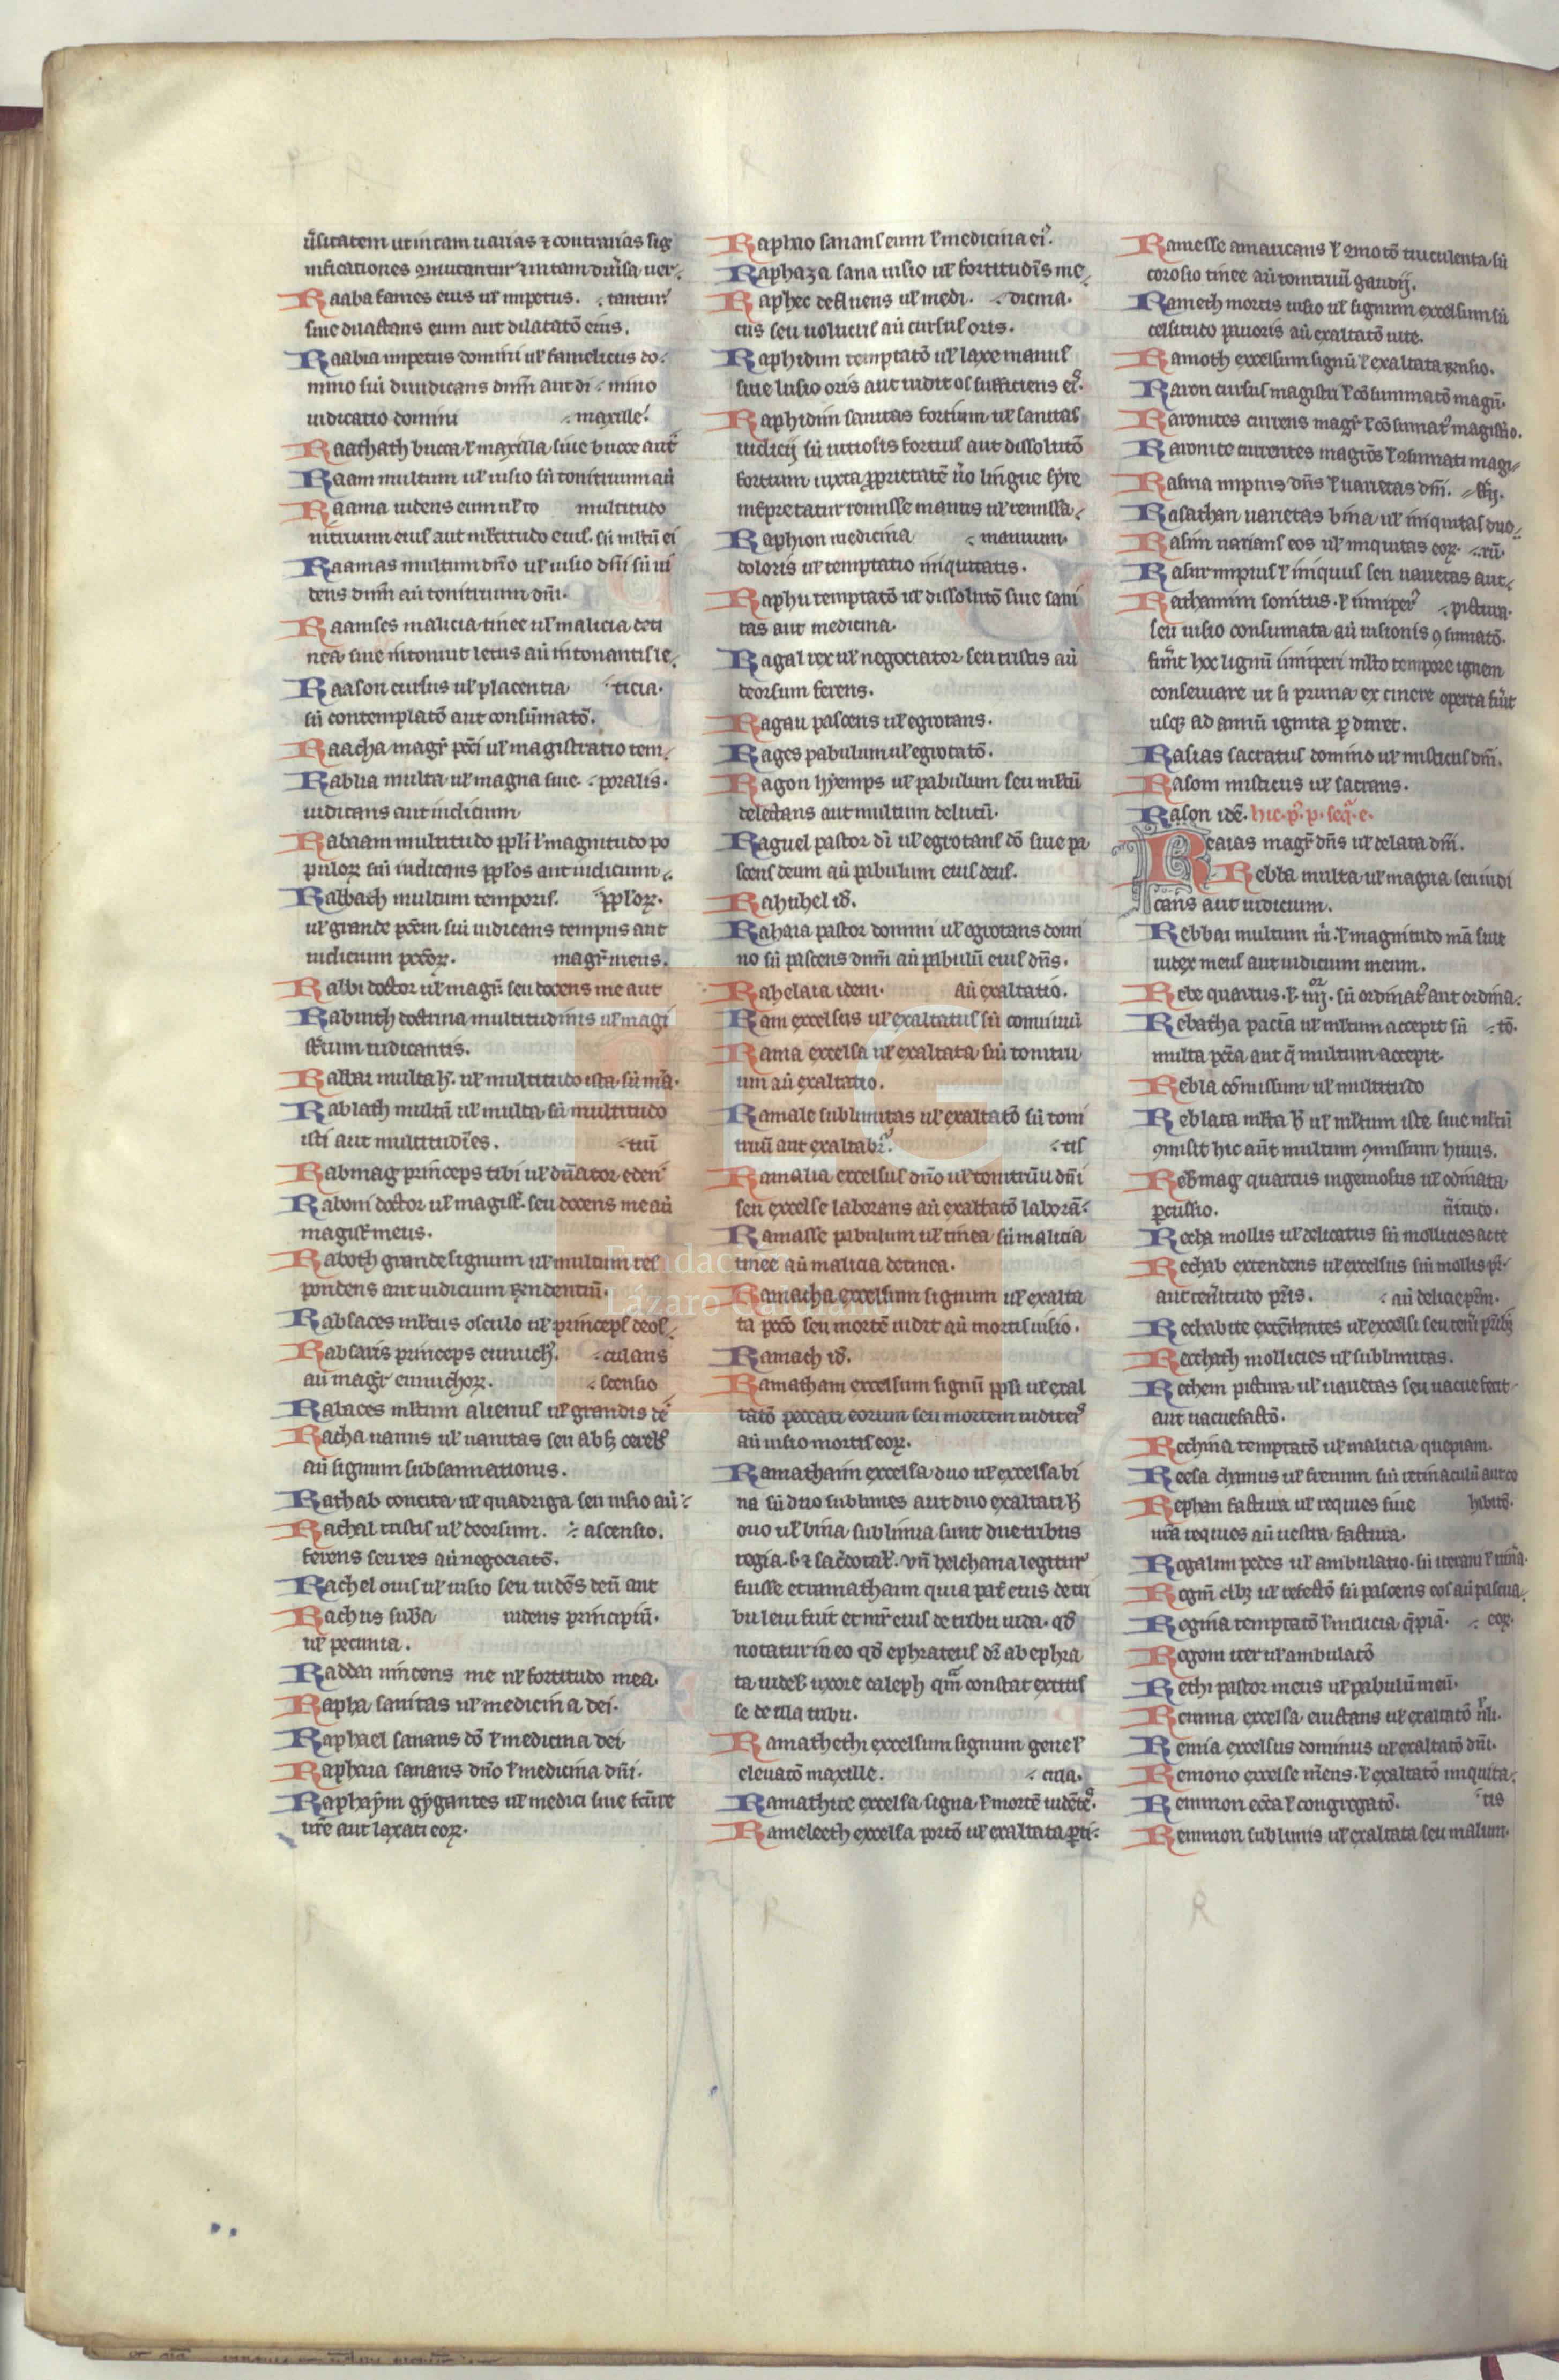 ũsitatem ut in tam uarias ⁊ contrarias sig
nificationes ꝯmutantur ⁊ in tam diũsa uer
Raaba fames eius uł impetus. tantur
siue dilatans eum aut dilatatõ eius.
Raabia impetus domini uł famelicus do
mino siũ diiudicans dnm̃ aut di mino
iudicatio domini maxille.
Raathath bucca ł maxilla siue bucce aut̃
Raam multum uł uisio sũ tonitruum aũ
Raama uidens eum uł to multitudo
nitruum eius aut młtitudo eius. sũ młtũ ei
Raamas multum dño uł uisio dñi sũ ui
dens dnm̃ aũ tonitruum dñi.
Raamses malicia tinee uł malicia deti
nea siue intonuit letus aũ intonantis le
Raason cursus uł placentia ticia.
sũ contemplatõ aut consũmatõ.
Raacha magr̃ pcc̃i uł magistratio tem
Rabba multa uł magna siue poralis.
iudicans aut iudicium
Rabaam multitudo ppłi ł magnitudo po
puloꝝ siũ iudicans ppłos aut iudicium
Rabbach multum temporis. ppłoꝝ.
uł grande pcc̃m siũ iudicans tempus aut
iudicium pccõꝝ. magr̃ meus.
Rabbi doctor uł magr̃ seu docens me aut
Rabbith doctrina multitudinis uł magi
strum iudicantis.
Rabbat multa h̃. uł multitudo ista sũ mła
Rablath multũ uł multa sũ multitudo
isti aut multitudĩes. tuũ
Rabmag princeps tibi uł dñator eden
Raboni doctor uł magisł seu docens me aũ
magisł meus.
Raboth grande signum uł multum res
pondens aut iudicium r̃ndentiũ.
Rabsaces młtus osculo uł princeps deos
Rabsaris princeps eunuch̃. culans
aũ magr̃ eunuchoꝝ. scensio
Rabaces młtum alienus uł grandis de
Racha uanus uł uanitas seu absꝫ cereb̃
aũ signum subsannationis.
Rathab concita uł quadriga seu uisio aũ
Rachal tristis uł deorsum. ascensio.
ferens seu res aũ negociatõ.
Rachel ouis uł uisio seu uidẽs deũ aut
Rachus suba uidens principiũ.
uł pecunia.
Raddai uincens me uł fortitudo mea.
Rapha sanitas uł medicina dei.
Raphael sanans dõ ł medicina dei
Raphaia sanans dño ł medicina dñi.
Raphaym gygantes uł medici siue
uire aut laxati eoꝝ.
Raphao sanans eum ł medicina ei.
Raphaza sana uisio uł fortitudĩs me
Raphec defluens uł medi. dicina.
cus seu uolucris aũ cursus oris.
Raphidim temptatõ uł laxe manus
siue lusio oris aut iudit os sufficiens ei.
Raphidim sanitas fortium uł sanitas
iudicij sũ uisio fortius aut dissolutõ
fortium iuxta ꝓprietatẽ ũo lingue syre
inẽpretatur remisse manus uł remissa
Raphion medicina manuum.
doloris uł temptatio iniquitatis.
Raphu temptatõ uł dissolutõ siue sani
tas aut medicina.
Ragal rex uł negociator seu tristis aũ
deorsum ferens.
Ragau pascens uł egrotans.
Rages pabulum uł egrotatõ.
Ragon hyemps uł pabulum seu młtũ
delectans aut multum
Raguel pastor di uł egrotans dõ siue pa
scens deum aũ pabulum eius deus.
Rahuhel id̃.
Rahaia pastor domini uł egrotans domi
no sũ pascens dnm̃ aũ pabulũ eius dñs.
Rahelaia idem. aũ exaltatio.
Ram excelsus uł exaltatus sũ
Rama excelsa uł exaltata siũ tonitru
um aũ exaltatio.
Ramale sublimitas uł exaltatõ sũ toni
truũ aut exaltab. tis
Ramalia excelsus dño uł tonitrũu dñi
seu excelse laborans aũ exaltatõ
Ramasse pabulum uł tinea sũ malicia
tinee aũ malicia detinea.
Ramacha excelsum signum uł exalta
ta pccõ seu mortẽ uidit aũ mortis uisio.
Ramach id̃.
Ramatham excelsum signũ ppłi uł exal
tatõ peccati eorum seu mortem uidit
aũ uisio mortis eoꝝ.
Ramathaim excelsa duo uł excelsa bi
na sũ duo sublimes aut duo exaltati h̃
duo uł bina sublimia sunt due tribus
regia.s.⁊ sac̃dotał. Vñ helchana legitur
fuisse et ramathaim quia pat̃ eius de tri
bu leui fuit et mr̃ eius de tribu iuda. qđ
notatur in eo qđ ephrateus dr̃ ab ephra
ta uideł uxore caleph qm̃ constat extitis
se de illa tribu.
Ramathethi excelsum signum gene ł
eleuatõ maxille. cula.
Ramathite excelsa signa ł mortẽ
Rameleeth excelsa uł exaltata
Ramesse amaricans ł ꝯmotõ truculenta sũ
corosio tinee aũ tonitruũ gaudij.
Rameth mortis uisio uł signum excelsum sũ
celsitudo aũ exaltatõ
Ramoth excelsum signũ ł exaltata r̃nsio.
Raron cursus magistri ł cõsummatõ magr̃.
Raronites currens magr̃ ł magistrio.
Raronite currentes ł ꝯsumati magi
Rasina impius dñs ł uarietas dñi. strij.
Rasathan uarietas bina uł iniquitas duo
Rasim uarians eos uł iniquitas eoꝝ. rũ.
Rasin impius ł iniquus seu uarietas aut
Rathamim sonitus. ł iuniper pictura.
seu uisio consumata aũ uisionis ꝯsumatõ.
hoc lignũ iuniperi młto tempore ignem
conseruare ut si pruna ex cinere operta
usqꝫ ad annũ ignita ꝑduret.
Rasias sacratus domino uł misticus dñi.
Rasom misticus uł sacrans.
Rason idẽ. hic.
Reaias magr̃ dñs uł delata dñi.
Rebla multa uł magna seu iudi
cans aut iudicium.
Rebbai multum m̃. ł magnitudo mã siue
iudex meus aut iudicium meum.
Rebe quartus. ł iiij. sũ ordinat aut ordina
Rebatha pacta uł młtum accepit sũ tõ.
multa aut q̃ multum accepit.
Rebla cõmissum uł multitudo
Reblata młta h̃ uł młtum iste siue młtũ
ꝯmisit hic aut̃ multum ꝯmissum huius.
Rebmag quartus ingeniosus uł
ꝑcussio.
Recha mollis uł delicatus sũ mollicies
Rechab extendens uł excelsus siũ mollis
aut
Rechabite uł excelsi seu
Recchath mollicies uł sublimitas.
Rechem pictura uł uarietas seu uacue fecit
aut uacuefactõ.
Rechma temptatõ uł malicia quepiam.
Recsa chamus uł frenum siũ retinaculũ aut co
Rephan factura uł requies siue
ur̃a requies aũ uestra factura.
Rogalim pedes uł ambulatio.
Regm̃ uł refectõ sũ pascens eos aũ pascua
Regma temptatõ ł malicia q̃piã. eoꝝ.
Regom iter uł ambulatõ
Rethi pastor meus uł pabulũ meũ.
Remma excelsa uł exaltatõ
Remia excelsus dominus uł exaltatõ dñi.
Remono excelse ł exaltatõ iniquita
Remmon ecc̃ta ł congregatõ. tis
Remmon sublimis uł exaltata seu malum.
Fundación
Lázaro Galdiano